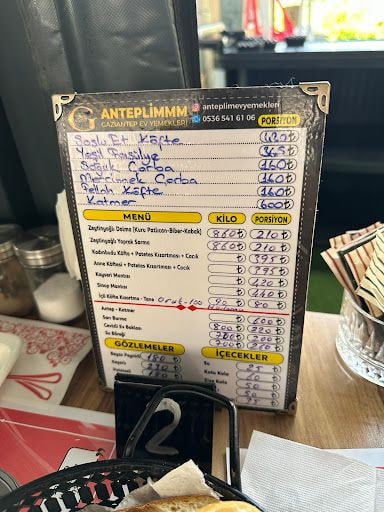 ANTEPLİMMM anteplimevyemekleri
GAZİANTEP EV YEMEKLERİ 0536 541 61 06 PORSİYON
Soslu Et Köfte 420₺
Yeşil Fasülye 365₺
Çorba 160₺
Mercimek Çorba 160₺
Fellah Köfte 160₺
Katmer 600₺
MENÜ KİLO PORSİYON
Zeytinyağlı Dolma (Kuru Patlıcan-Biber-Kabak) 860₺ 210₺
Zeytinyağlı Yaprak Sarma 860₺ 210₺
Kadınbudu Köfte + Patates Kızartması + Cacık 395₺
Anne Köftesi + Patates Kızartması + Cacık 395₺
Kayseri Mantısı 420₺
Sinop Mantısı
İçli Köfte Kızartma - Tane 90₺ 80₺
Antep - Katmer
Sarı Burma 100₺
Cevizli Ev Baklavı 800₺ 220₺
Su Böreği 700₺ 200₺
GÖZLEMELER İÇECEKLER
Beyaz Peynirli 180₺ Su 25₺
Kutu Kola
Patatesli
2